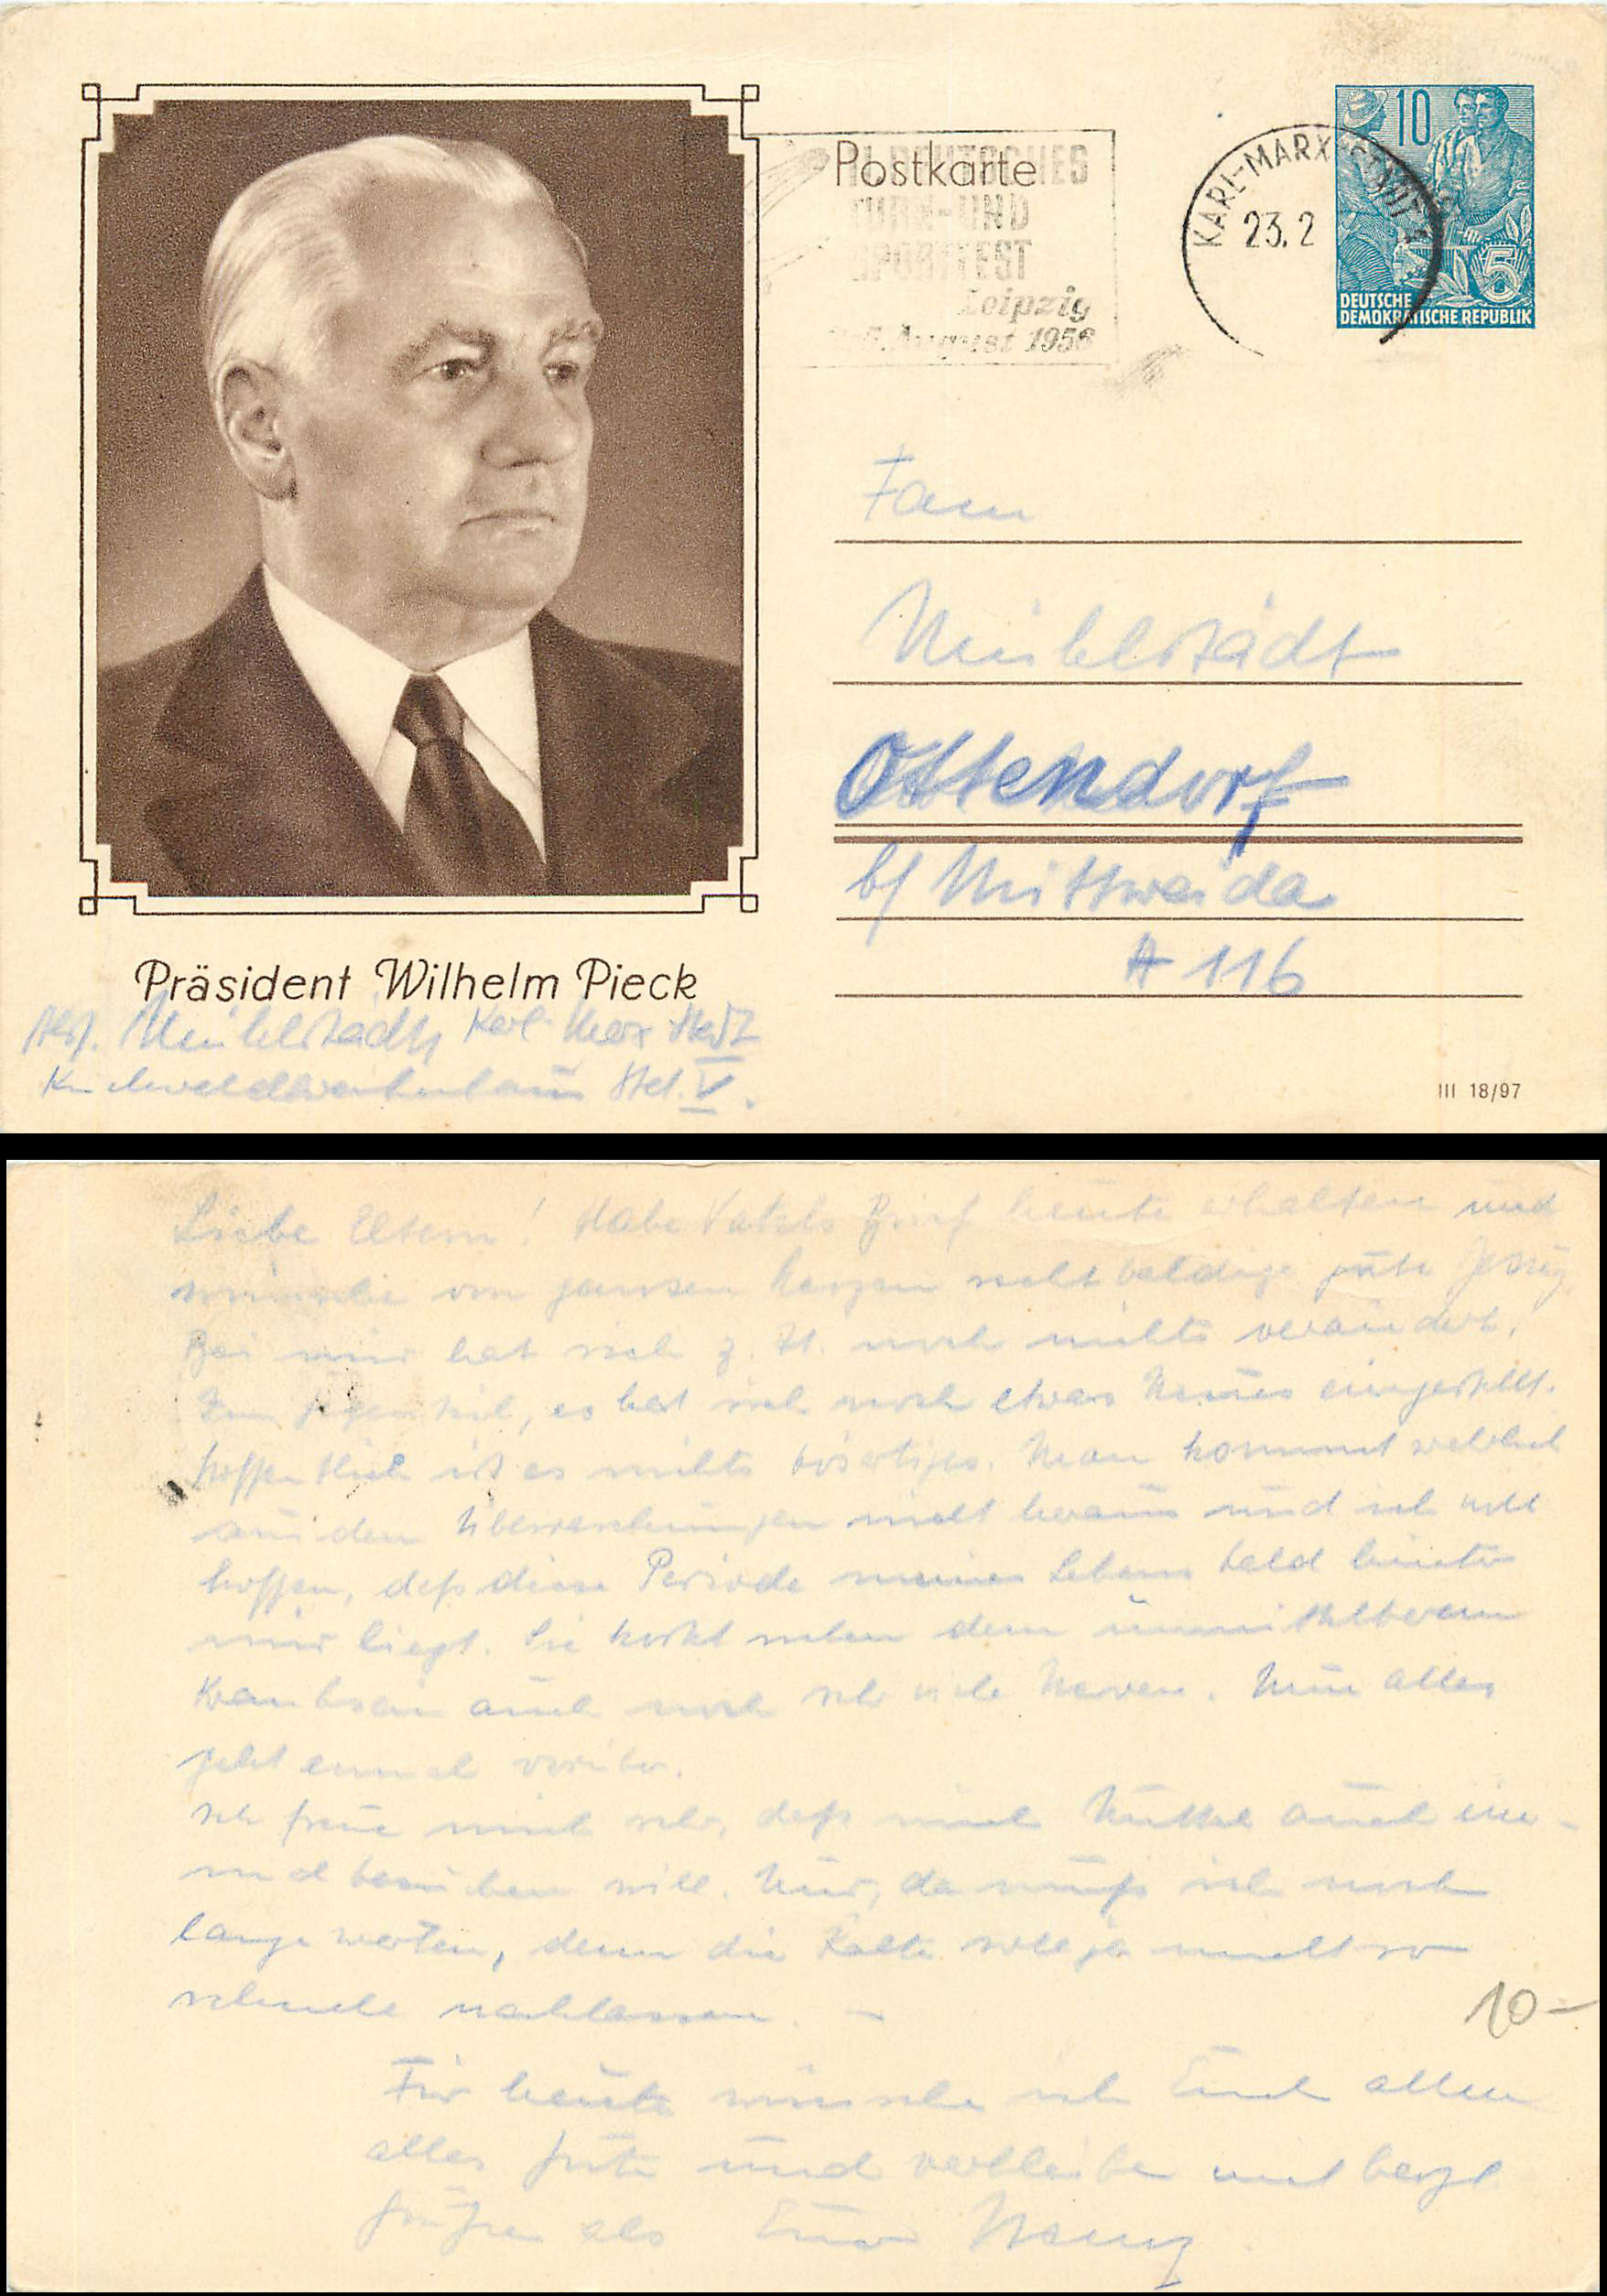 Postkarte
II. DEUTSCHES
TURN-UND
SPORTFEST
Leipzig
August 1956
KARL-MARX-STADT
23.2
10
5
DEUTSCHE
DEMOKRATISCHE REPUBLIK
Fam
Mühlstädt
Ottendorf
b/ Mittweida
A 116
Präsident Wilhelm Pieck
Abs. Mühlstädt, Karl Marx Stadt
Küchwaldkrankenhaus Stat. V.
III 18/97
Liebe Eltern! Habe Vatels Brief heute erhalten und
wünsche von ganzem Herzen recht baldige gute
Bei mir hat sich z. Zt. noch nichts verändert.
Im Gegenteil, es hat sich noch etwas Neues eingestellt.
Hoffentlich ist es nichts bösartiges. Man kommt wirklich
aus den Überraschungen nicht heraus und ich will
hoffen, daß diese Periode meines Lebens bald hinter
mir liegt. Sie kostet neben dem unmittelbaren
Kranksein auch noch sehr viele Nerven. Nun alles
geht einmal vorüber.
Ich freue mich sehr, daß mich Muttel auch
mal besuchen will. Nur, da muß ich noch
lange warten, denn die Kälte will ja nicht so
schnell nachlassen. –
10-
Für heute wünsche ich Euch allen
alles Gute und verbleibe mit herzl.
Grüßen als Euer